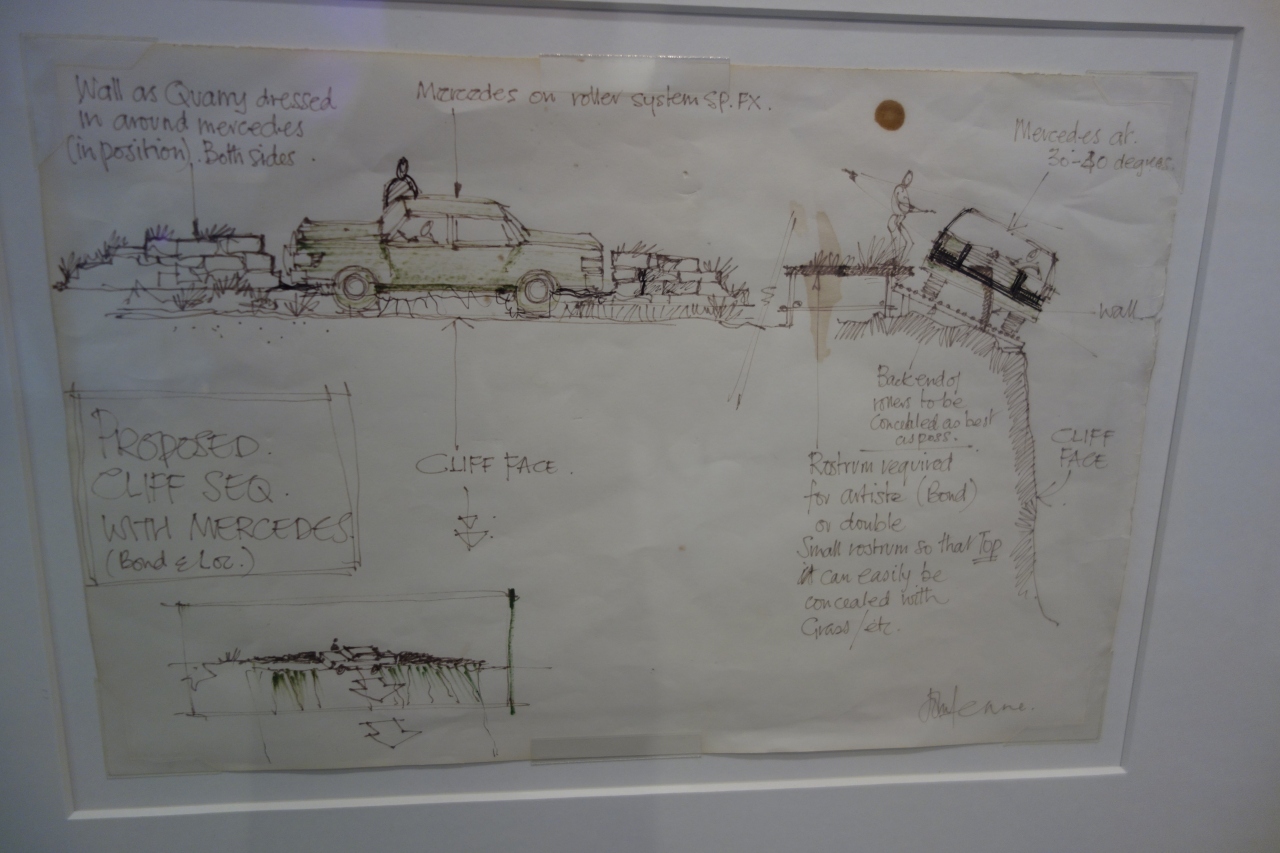 Wall as Quarry dressed
in around mercedes
(in position). Both sides.
Mercedes on roller system SP.FX.
Mercedes at
30-40 degrees.
wall
Back end of
rollers to be
concealed as best
as poss.
CLIFF
FACE
CLIFF FACE.
PROPOSED.
CLIFF SEQ.
WITH MERCEDES.
(Bond & Loc.)
Rostrum required
for artiste (Bond)
or double
Small rostrum so that Top
it can easily be
concealed with
Grass/etc.